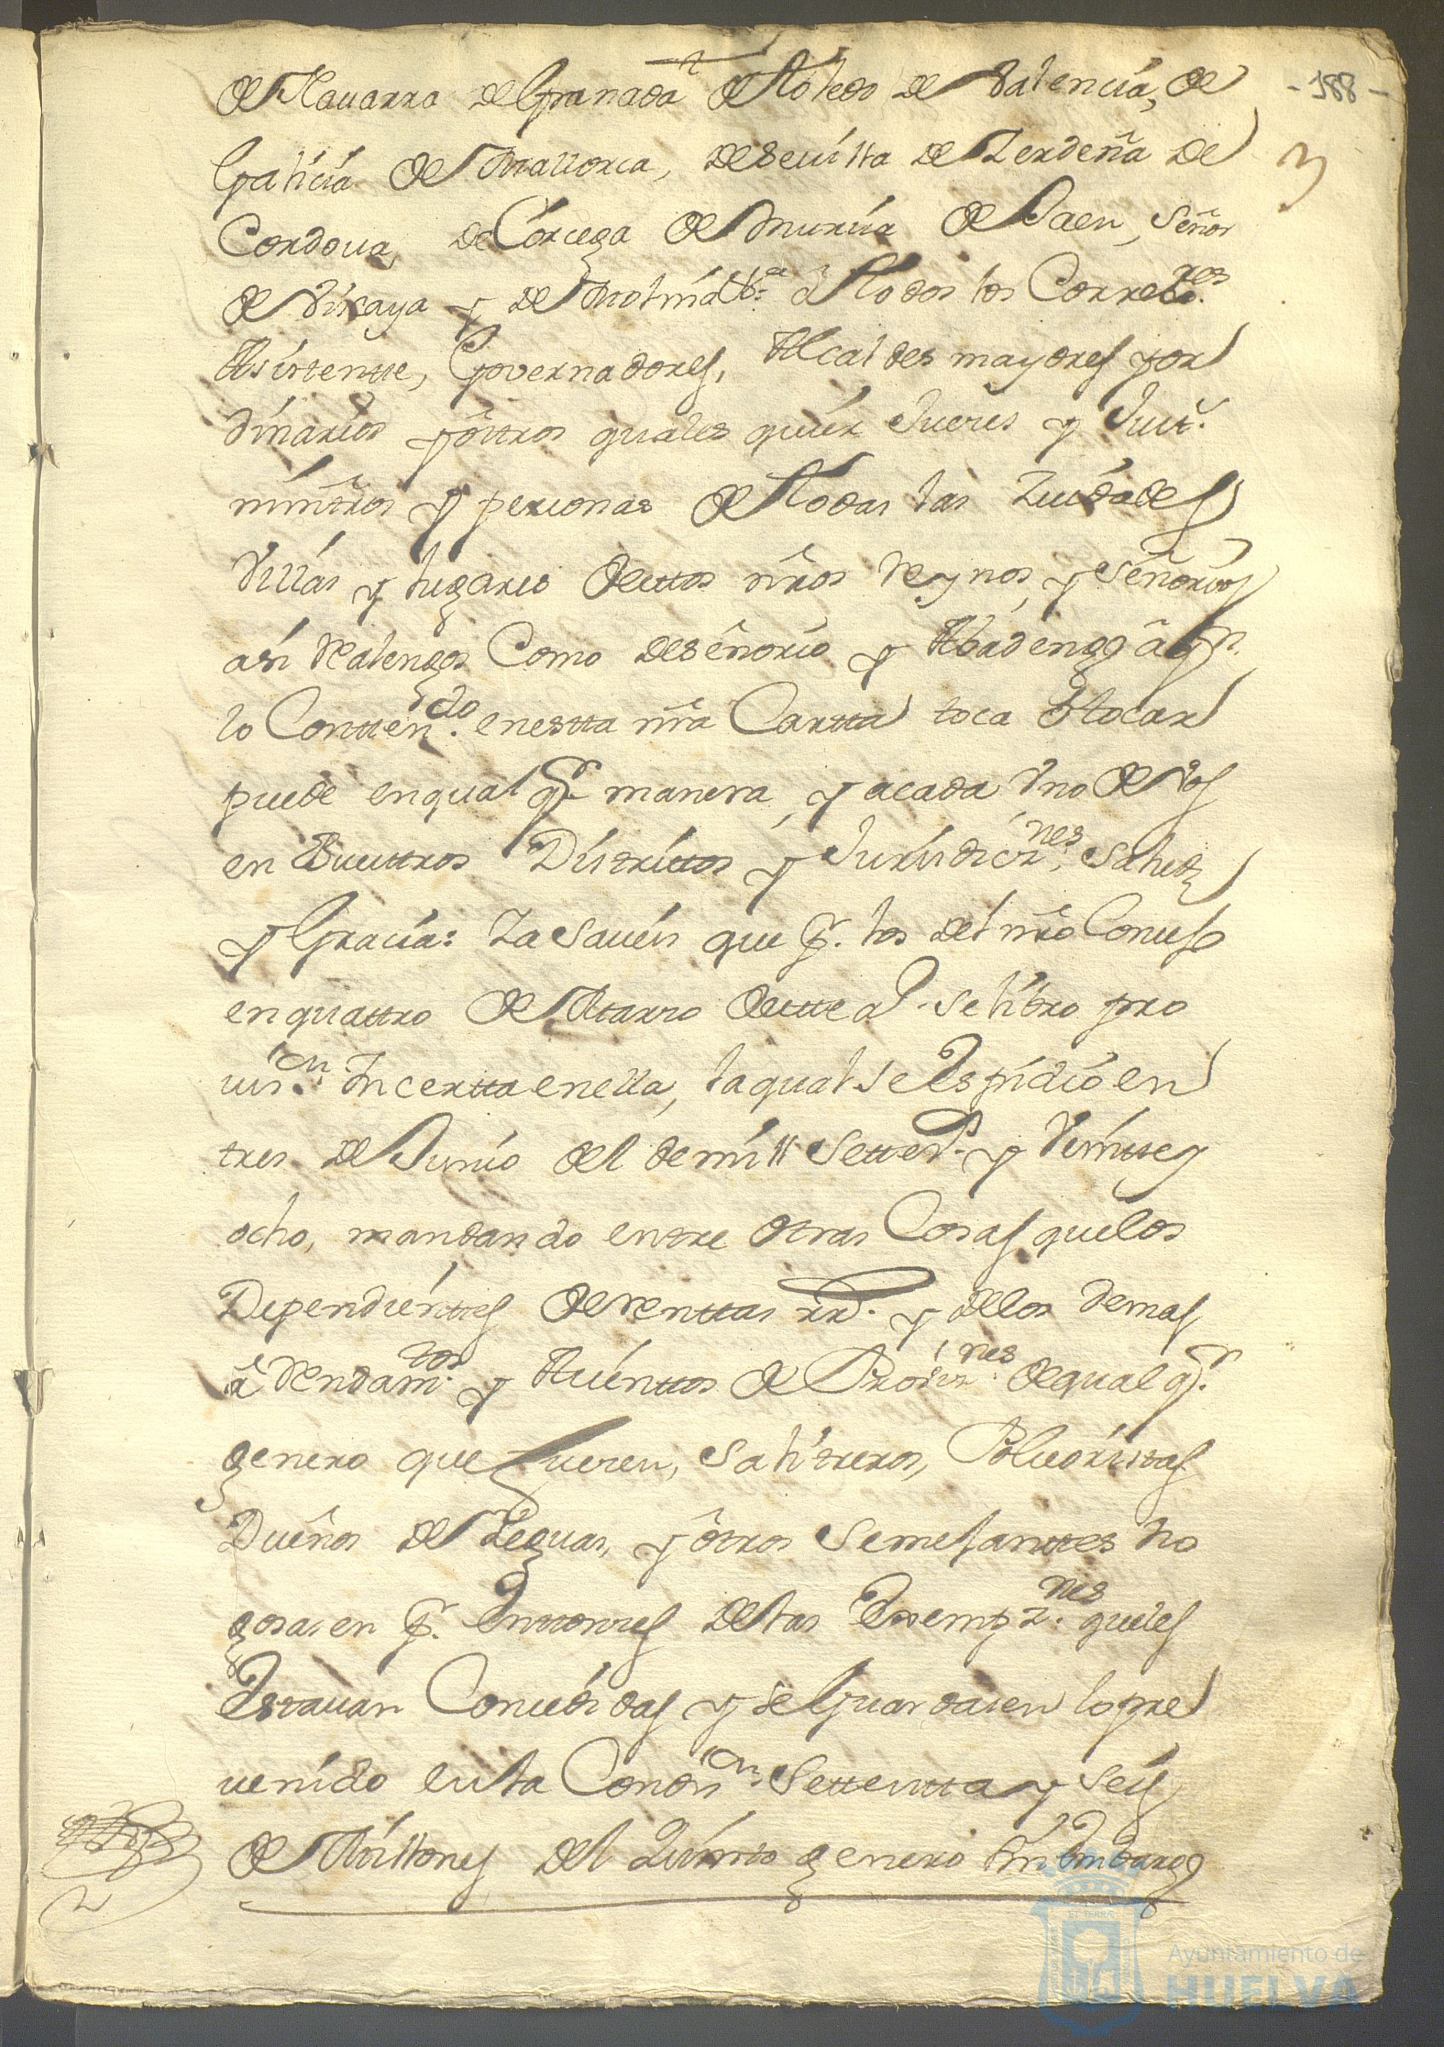 de Nauarra de Granada de Toledo de Valencia, de
- 188 -
Galicia de Mallorca, de Seuilla de Zerdeña de
3
Cordoua, de Córcega de Murcia de Jaen, Señor
de Vizcaya y de Molina &.ª â Todos los Correxres.
Asistentte, Governadores, Alcaldes mayores y or
dinarios y ôttros quales quier Jueces y Just.
ministros y personas de Todas las Ziudades
Villas y lugares desttos nrôs Reynos, y Señorios
asi Realengos Como de señorio y Abadengo â q.n
lo Contten.do en estta nrâ Cartta toca ô tocar
puede en qual q.r manera, y a cada Vno de Vos
en Vuesttros Disttrictos y Jurisdicz.nes, Salud
y Gracia: Ya Saveis que p.r los del nrô Consejo
en quattro de Marzo destte a.º se libro pro
uis.on Incertta en ella, la qual se Espidio en
tres de Junio del de mill Settez.s y Veintte y
ocho, mandando entre otras Cosas que los
Dependienttes de Renttas R.s y de los demas
â Rendam.tos y Asienttos de Prouis.nes de qual q.r
genero que fueren, Salitreros, Poluoristas
Dueños de Yeguas, y ôtros Semejanttes no
gosasen p.r Enttonces de las Exempz.nes que les
Estauan Concedidas y se Guardasen lo pre
uenido en la Condiz.on Settentta y Seis
de Millones del Quinto genero
2
Ayuntamiento de
HUELVA